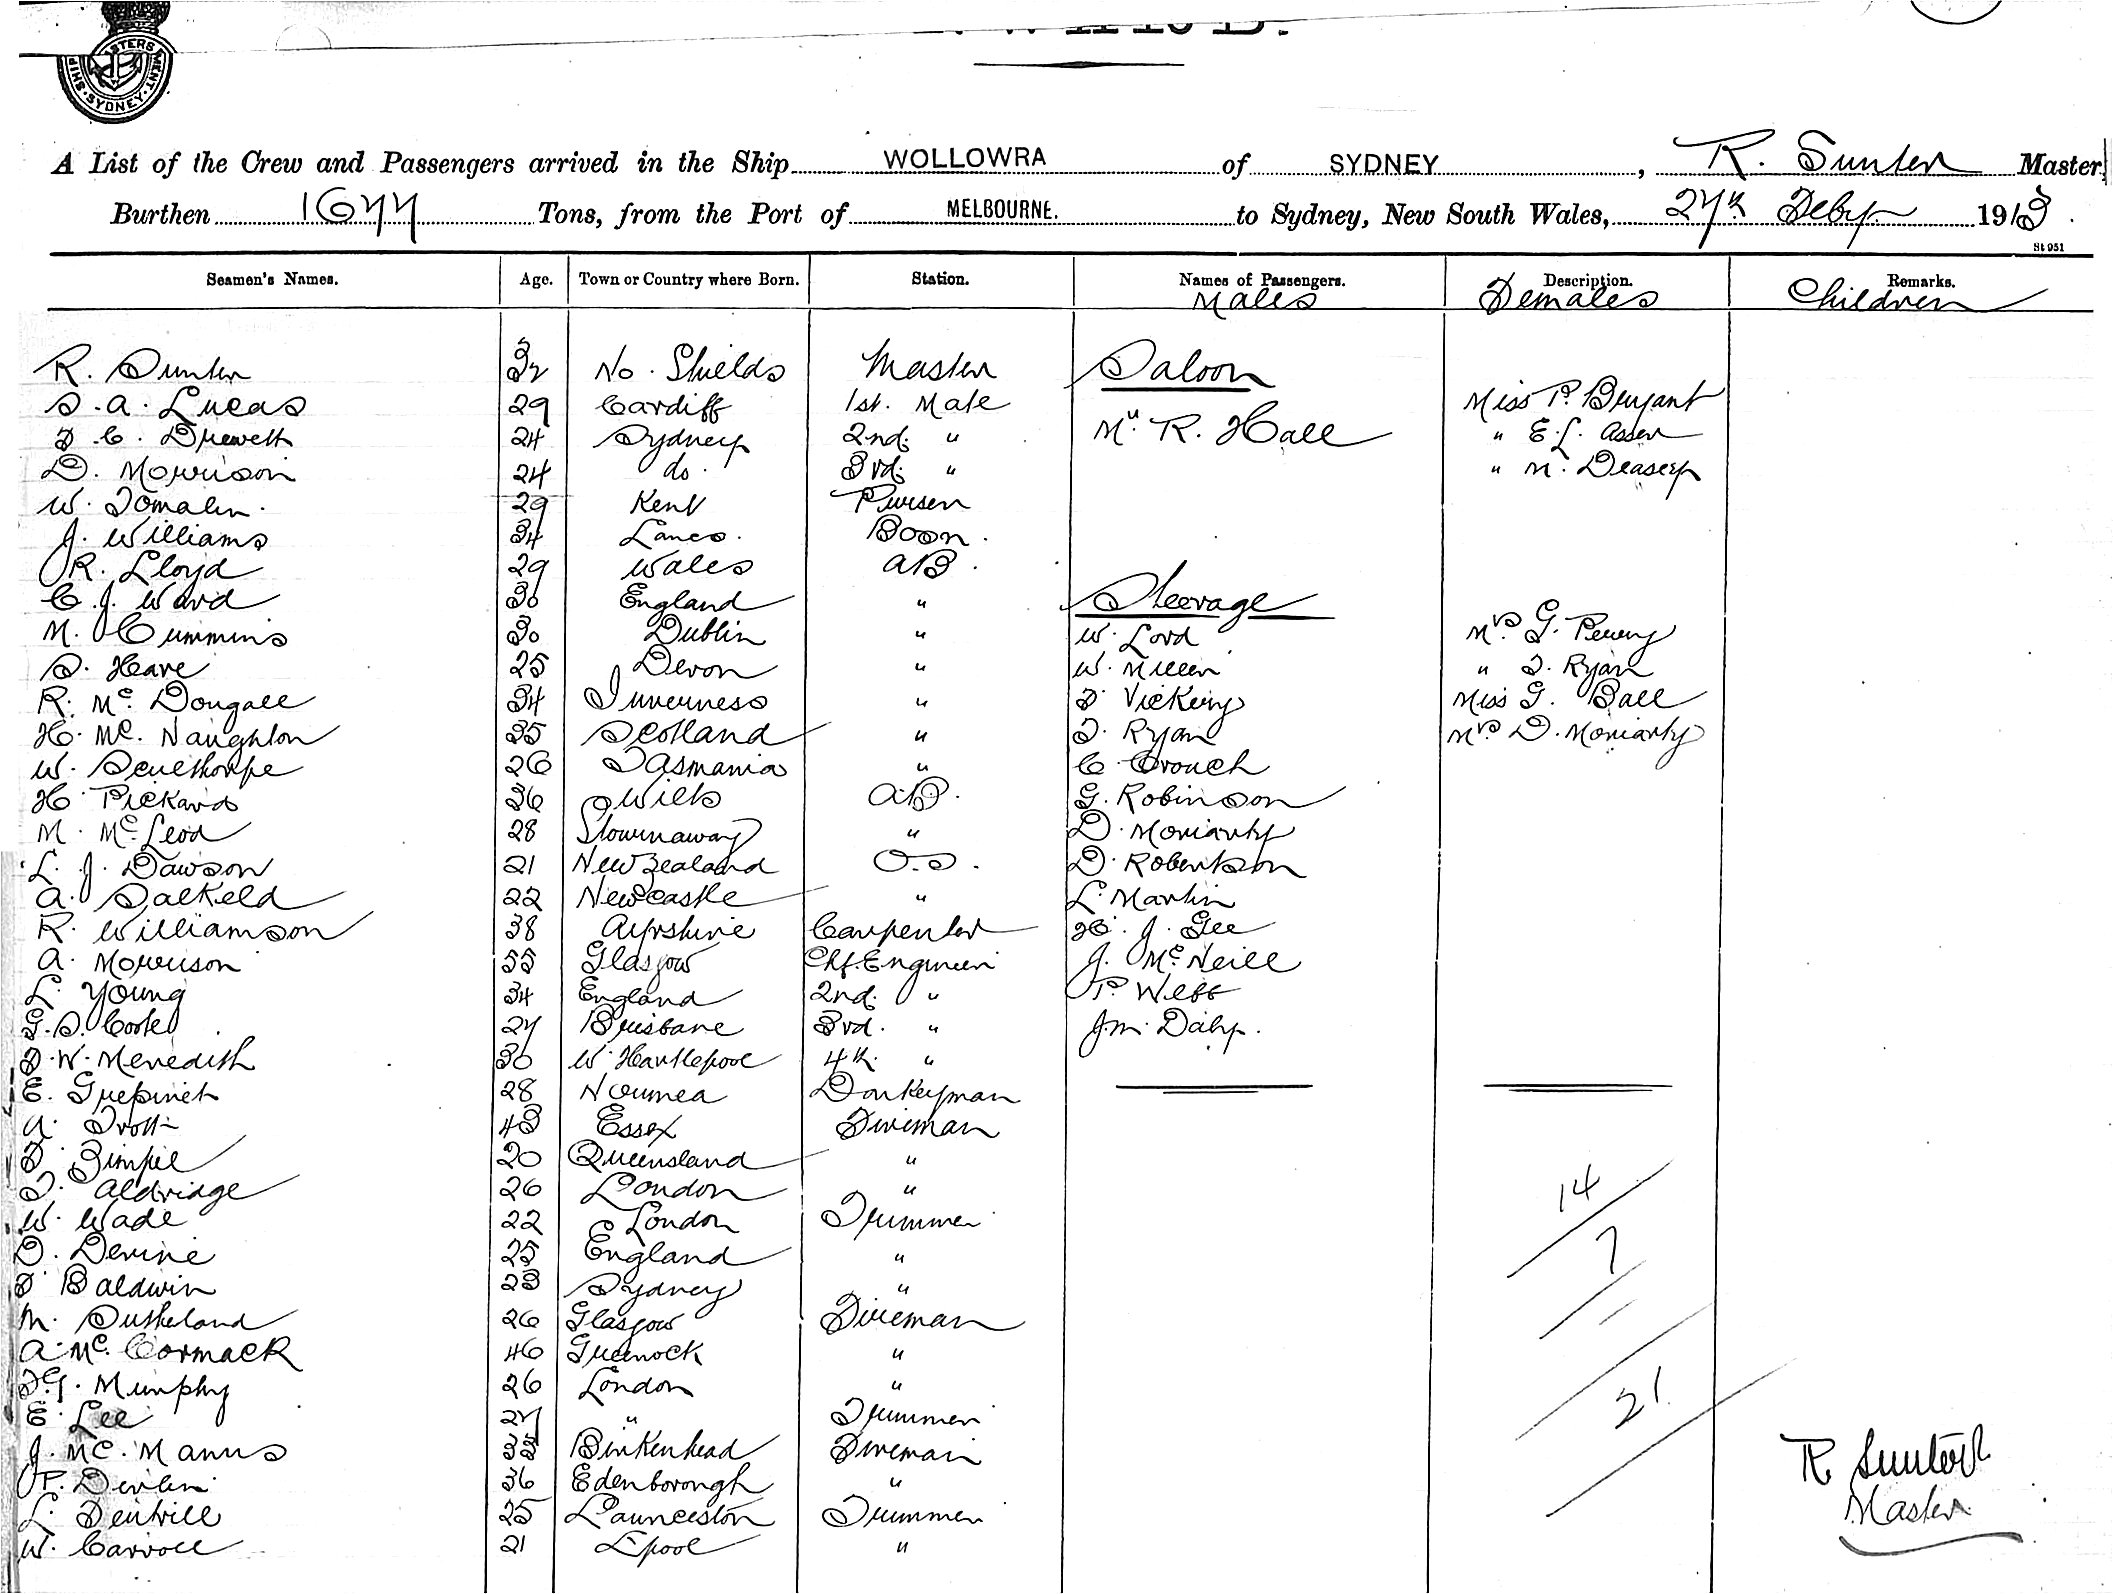 STERS
SHIP
MENT
SYDNEY
A List of the Crew and Passengers arrived in the Ship WOLLOWRA of SYDNEY, R. Sunter Master,
Burthen 1677 Tons, from the Port of MELBOURNE. to Sydney, New South Wales, 27th Feby 1913.
St 951
Seamen's Names. Age. Town or Country where Born. Station. Names of Passengers. Description. Remarks.
Males Females Children
R. Sunter 32 No. Shields Master Saloon
S. A. Lucas 29 Cardiff 1st. Mate Miss P. Bryant
F. C. Drewett 24 Sydney 2nd. " Mr R. Hall " E. L. Asser
D. Morrison 24 do. 3rd. " " M. Deasey
W. Tomalin. 29 Kent Purser
J. Williams 34 Lancs. Bosn.
R. Lloyd 29 Wales AB.
C. J. Ward 30 England " Steerage
M. Cummins 30 Dublin " W. Lord Mrs. G. Perry
S. Hare 25 Devon " W. Miller " T. Ryan
R. Mc Dougall 34 Inverness " F. Vickery Miss G. Ball
H. Mc. Naughton 35 Scotland " T. Ryan Mrs D. Moriarty
W. Scuethorpe 26 Tasmania " C. Crouch
H. Pickard 36 Wilts AB. G. Robinson
M. Mc Leod 28 Stornaway " D. Moriarty
L. J. Dawson 21 New Zealand O.S. D. Robertson
A. Salkeld 22 Newcastle " L. Martin
R. Williamson 38 Ayrshire Carpenter H. J. Gee
A. Morrison 55 Glasgow Chf. Engineer J. Mc Neill
L. Young 34 England 2nd. " P. Webb
G. S. Cook 27 Brisbane 3rd. " J. M. Daly.
F. W. Meredith 30 W. Hartlepool 4th. "
E. Grepinet 28 Noumea Donkeyman
A. Trott 43 Essex Fireman
F. Zimpel 20 Queensland "
T. Aldridge 26 London "
14
W. Wade 22 London Trimmer
D. Devine 25 England "
7
F. Baldwin 23 Sydney "
M. Sutherland 26 Glasgow Fireman
A. Mc. Cormack 46 Greenock "
F. G. Murphy 26 London "
21
E. Lee 27 " Trimmer
J. Mc. Manus 33 Birkenhead Fireman R Sunter
P. Devlin 36 Edenborough "
L. Dentrill 25 Launceston Trimmer Master
W. Carroll 21 L'pool "